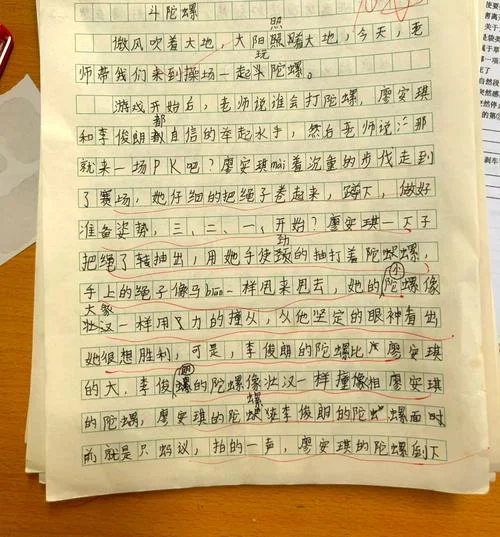 斗陀螺
微风吹着大地，太阳照暖大地，今天，老
师带我们来到操场一起玩斗陀螺。
游戏开始后，老师说谁会打陀螺，廖安琪
和李俊朗都自信的举起水手，然白老师说：那
就来一场PK吧？廖安琪mài着沉重的步伐走到
了赛场，她仔细的把绳子卷起来，蹲下，做好
准备姿势，三、二、一，开始？廖安琪一下子
把绳子转抽出，用她手使劲的抽打着陀螺，
手上的绳子像马biān一样甩来甩去，她的陀螺像
大象
壮汉一样用了力的撞人，从他坚定的眼神看出
她很想胜利，可是，李俊朗的陀螺比廖安琪
的大，李俊朗的陀螺像壮汉一样撞像相廖安琪
的陀螺，廖安琪的陀螺在李俊朗的陀螺面时
前就是只蚂议，拍的一声，廖安琪的陀螺倒下